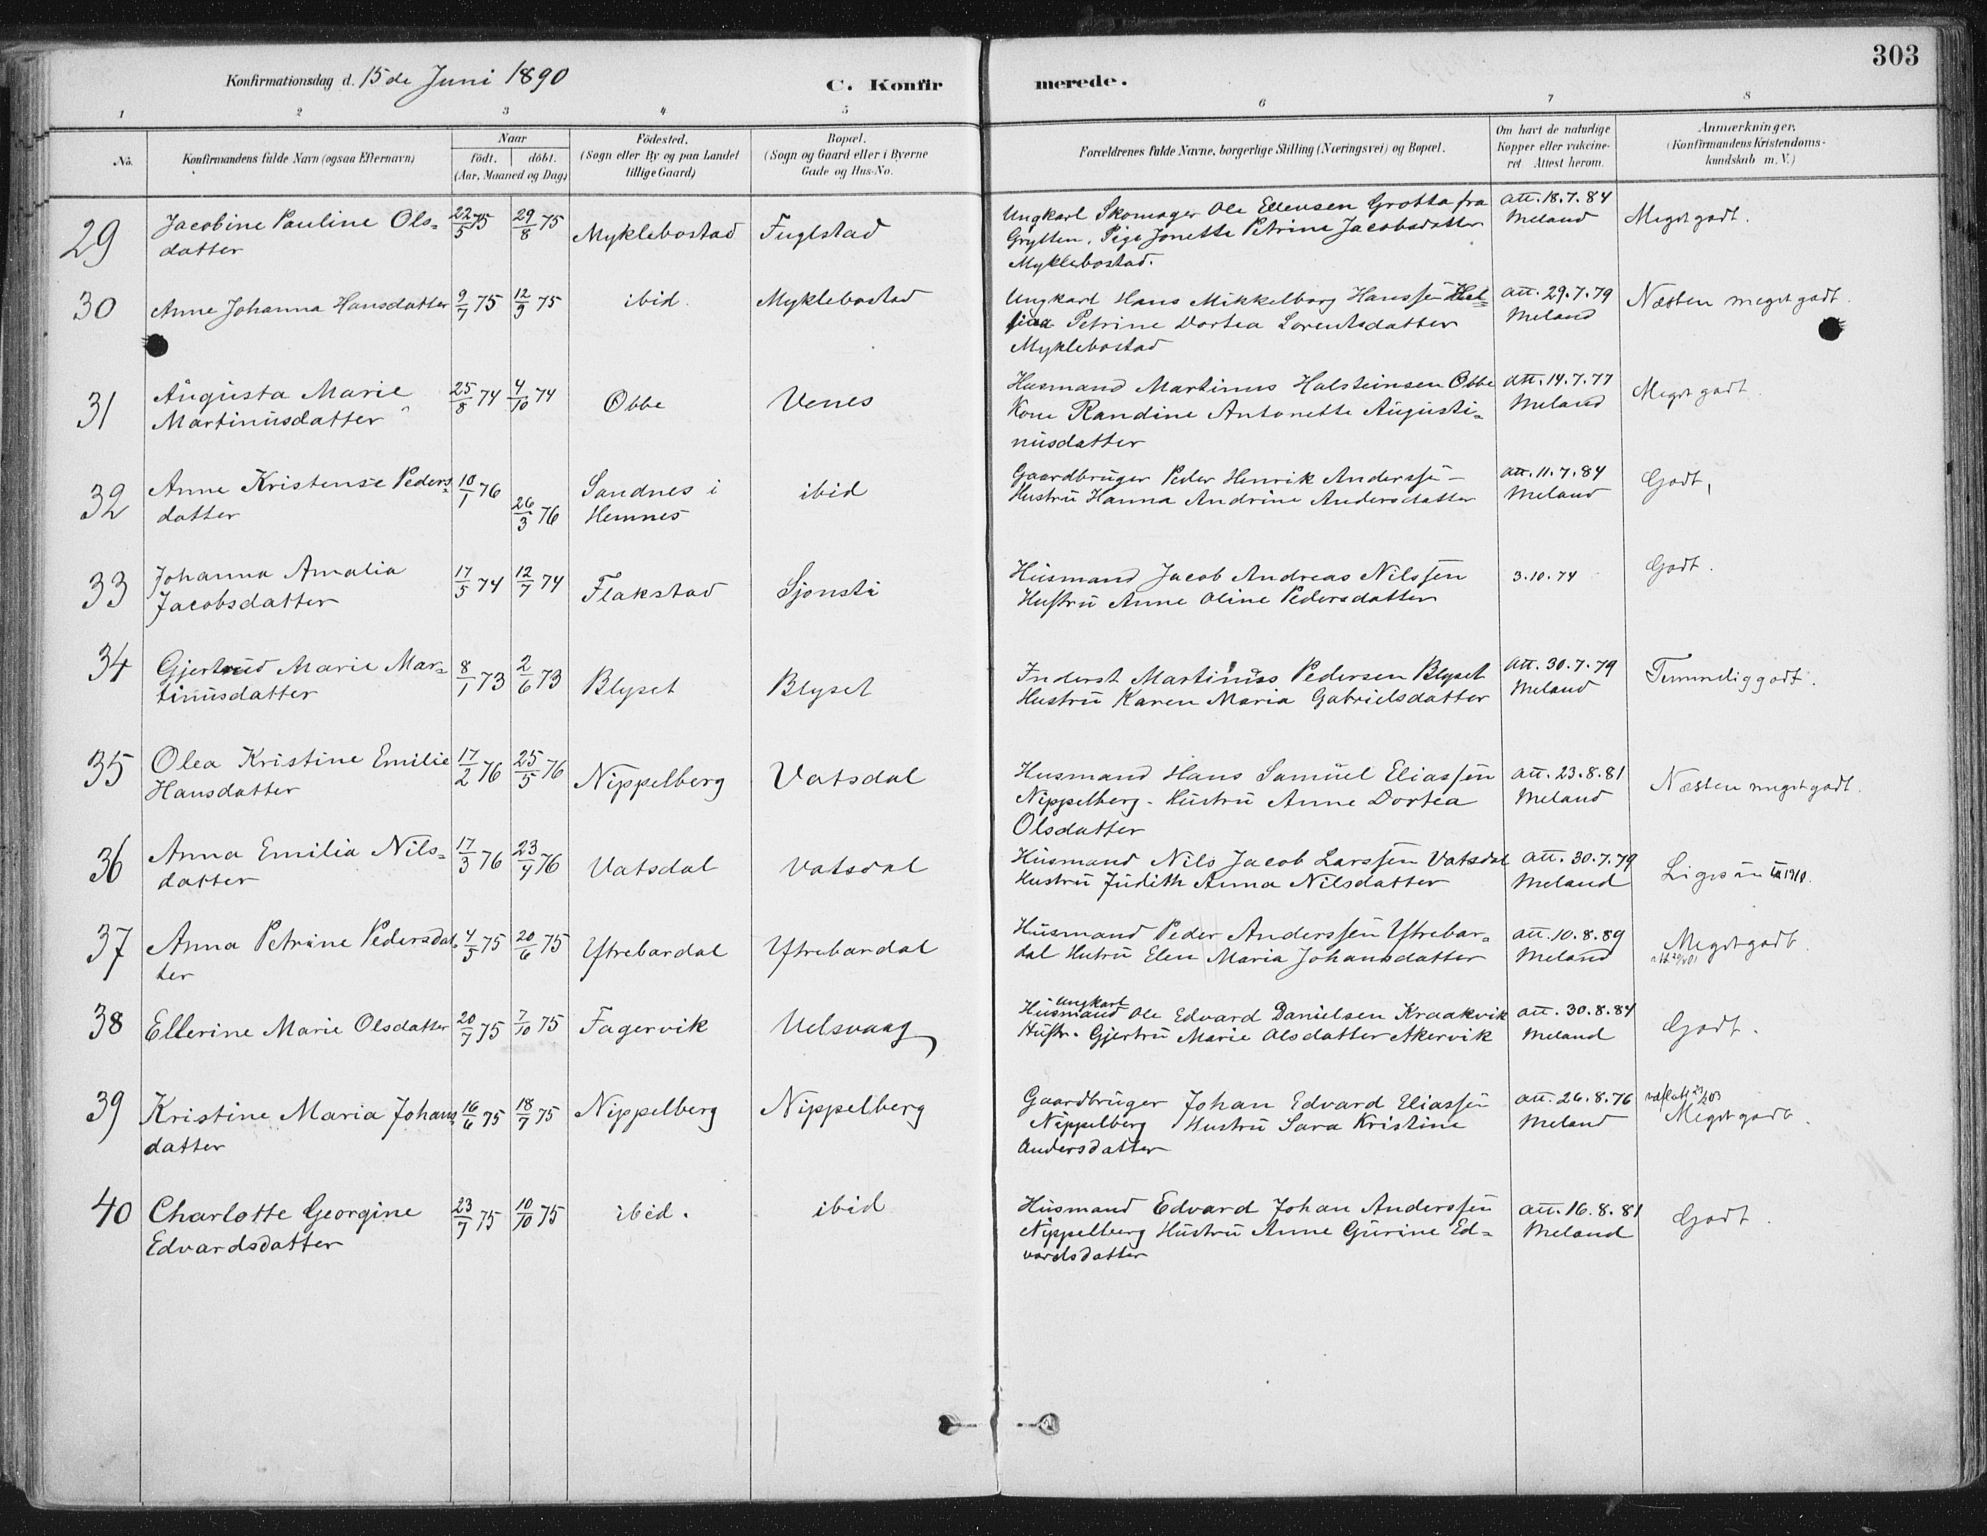 303
Konfirmationsdag d. 15de Juni 1890
C. Konfirmerede.
1 2 3 4 5 6 7 8
No.
Konfirmandens fulde Navn (ogsaa Efternavn)
Naar
födt. döbt.
(Aar, Maaned og Dag)
Födested.
(Sogn eller By og paa Landet
tillige Gaard)
Bopæl.
(Sogn og Gaard eller i Byerne
Gade og Hus-No.
Forældrenes fulde Navne, borgerlige Stilling (Næringsvei) og Bopæl.
Om havt de naturlige
Kopper eller vakcine-
ret. Attest herom.
Anmærkninger.
(Konfirmandens Kristendoms-
kundskab m. V.)
29 Jacobine Pauline Ols- 22/5 75 29/8 75 Myklebostad Fuglstad Ungkarl Skomager Ole Ellensen Grotta fra att. 18.7.84 Meget godt.
datter Grytten. Pige Jonette Petrine Jacobsdatter Meland
Myklebostad.
30 Anne Johanna Hansdatter 9/7 75 12/9 75 ibid. Myklebostad Ungkarl Hans Mikkelborg Hanssen att. 29.7.79 Næsten meget godt.
Petrine Dortea Lorentsdatter Meland
Myklebostad
31 Augusta Marie 25/8 74 4/10 74 Obbe Venes Husmand Martinus Halsteinsen Obbe att. 14.7.77 Meget godt.
Martinusdatter Kone Randine Antonette Augusti- Meland
nusdatter
32 Anne Kristense Peders- 10/1 76 26/3 76 Sandnes i ibid Gaardbruger Peder Henrik Anderssen - att. 11.7.84 Godt,
datter Hemnes Hustru Hanna Andrine Andersdatter Meland
33 Johanna Amalia 17/5 74 12/7 74 Flakstad Sjonsti Husmand Jacob Andreas Nilssen 3.10.74 Godt.
Jacobsdatter Hustru Anne Oline Pedersdatter
34 Gjertrud Marie Mar- 8/1 73 2/6 73 Blyset Blyset Inderst Martinus Pedersen Blyset att. 30.7.79 Temmelig godt.
tinusdatter Hustru Karen Maria Gabrielsdatter Meland
35 Olea Kristine Emilie 17/2 76 25/5 76 Nippelberg Vatsdal Husmand Hans Samuel Eliassen att. 23.8.81 Næsten meget godt.
Hansdatter Nippelberg - Hustru Anne Dortea Meland
Olsdatter
36 Anna Emilia Nils- 17/3 76 23/4 76 Vatsdal Vatsdal Husmand Nils Jacob Larssen Vatsdal att. 30.7.79
datter Hustru Judith Anna Nilsdatter Meland
37 Anna Petrine Pedersdat- 4/5 75 20/6 75 Ytrebardal Ytrebardal Husmand Peder Anderssen Ytrebar- att. 10.8.89 Meget godt.
ter dal Hutru Elen Maria Johansdatter Meland
38 Ellerine Marie Olsdatter 20/7 75 7/10 75 Fagervik Uelsvaag Ungkarl
Husmand Ole Edvard Danielsen Kraakvik att. 30.8.84 Godt.
Hustr. Gjertru Marie Olsdatter Akervik Meland
39 Kristine Maria Johans- 16/6 75 18/7 75 Nippelberg Nippelberg Gaardbruger Johan Edvard Eliassen att. 26.8.76 Meget godt.
datter Nippelberg Hustru Sara Kristine Meland
Andersdatter
40 Charlotte Georgine 23/7 75 10/10 75 ibid. ibid Husmand Edvard Johan Anderssen att. 16.8.81 Godt.
Edvardsdatter Nippelberg Hustru Anne Gurine Ed- Meland
vardsdatter